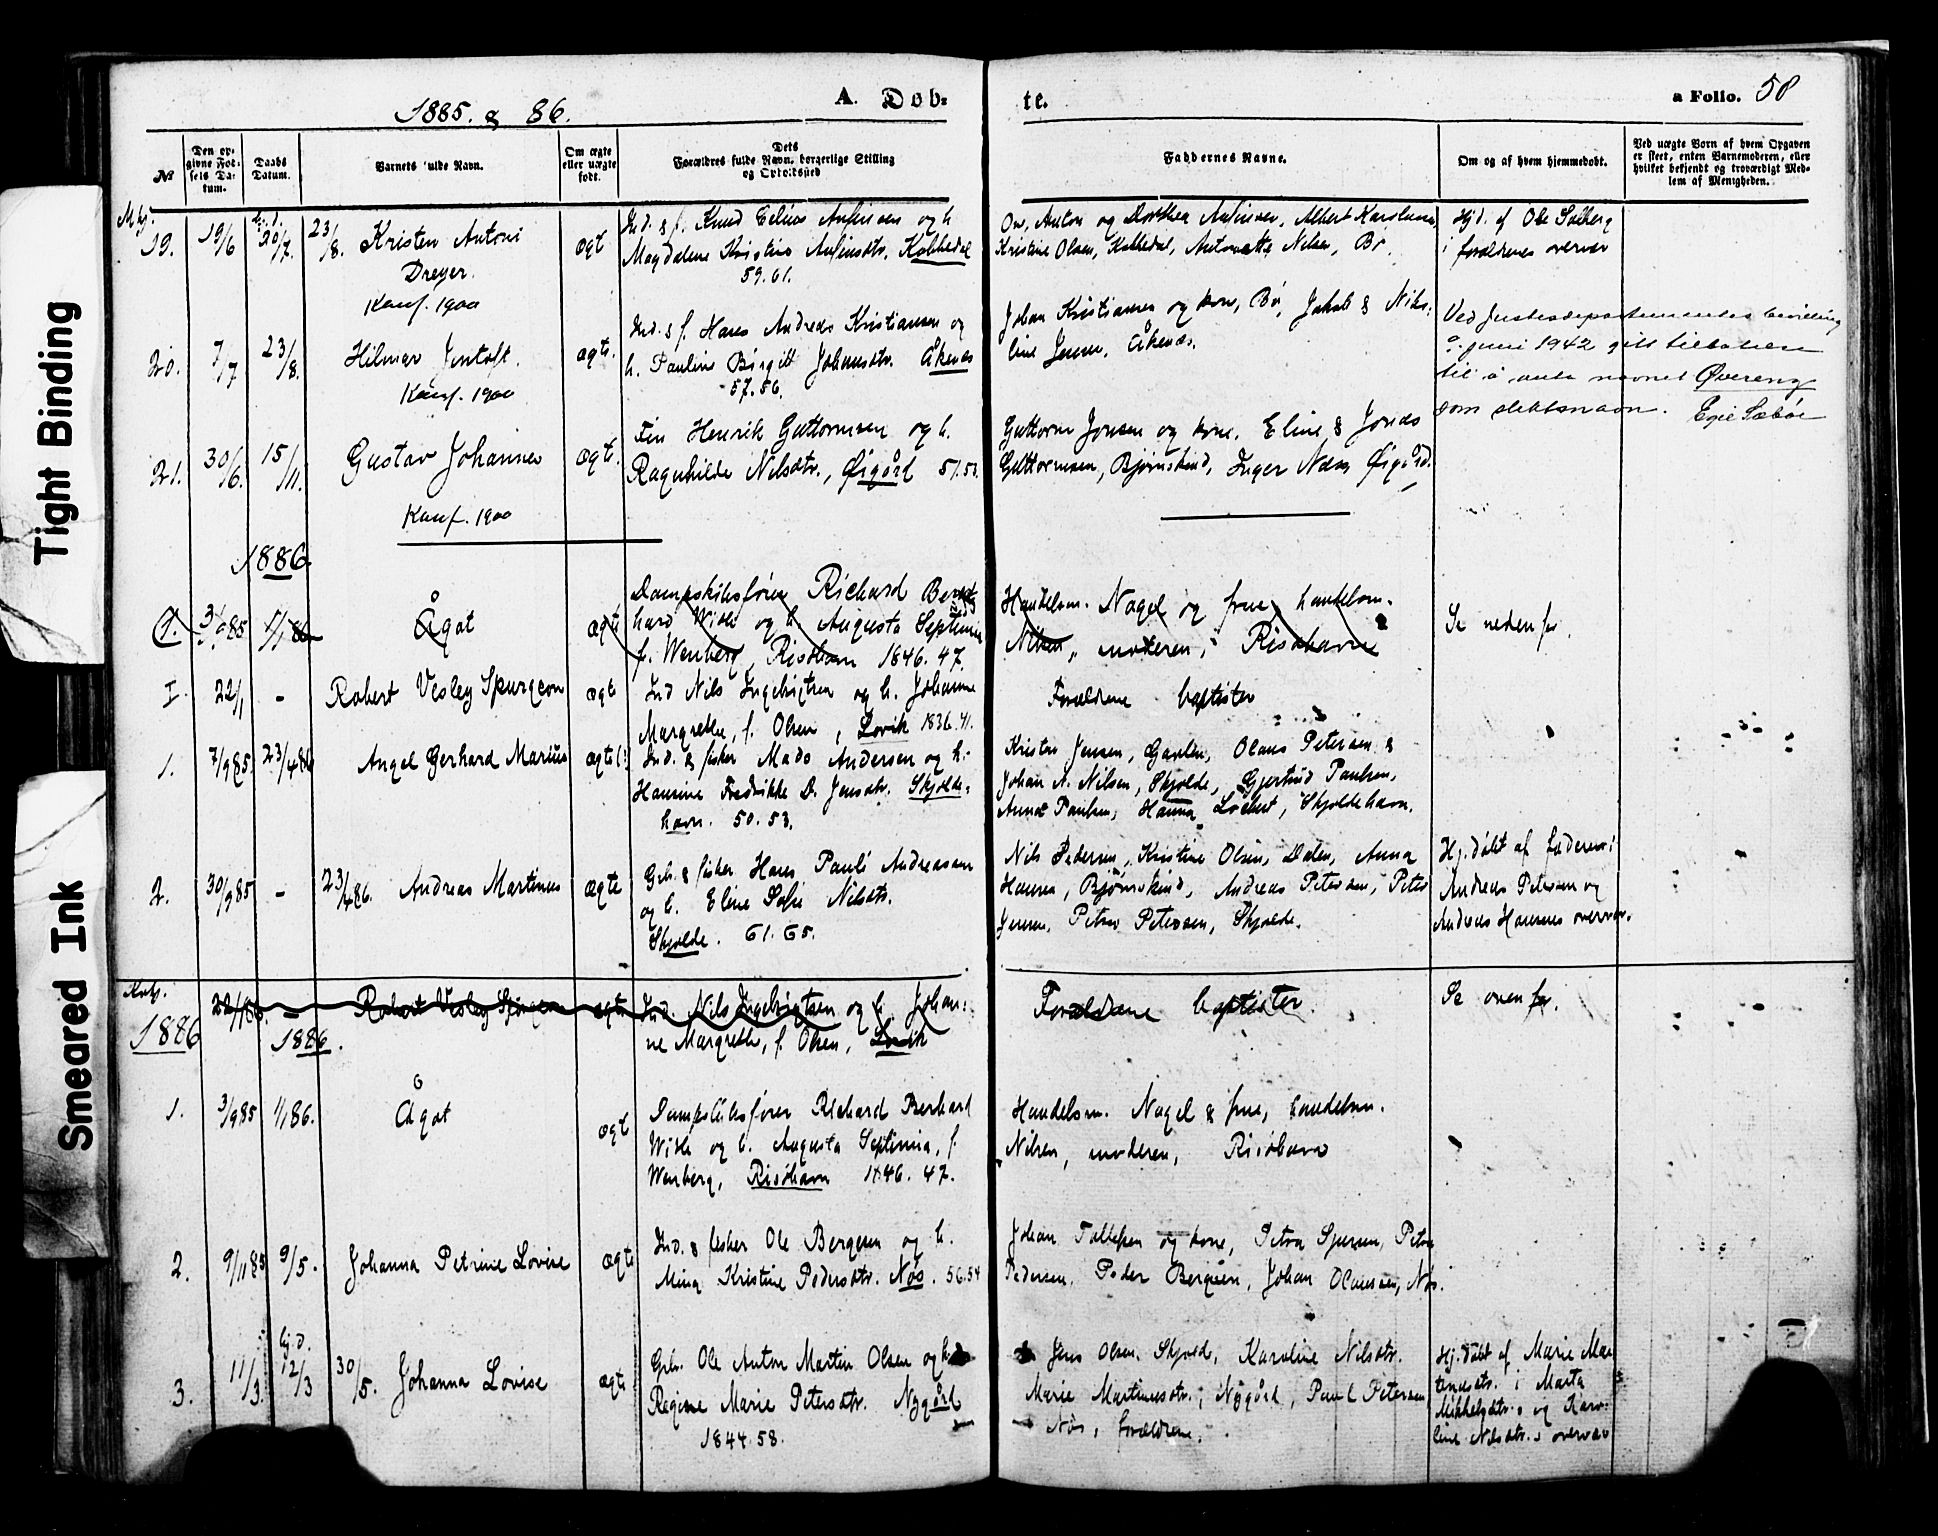 Tight Binding
Smeared Ink
1885. & 86.
A. Døb-
te.
a Folio. 58
№
Den opgivne Fødsels Datum.
Daabs Datum.
Barnets fulde Navn.
Om ægte eller uægte født.
Dets Forældres fulde Navn, borgerlige Stilling og Opholdssted
Faddernes Navne.
Om og af hvem hjemmedøbt.
Ved uægte Børn af hvem Opgaven er skeet, enten Barnemoderen, eller hvilket bekjendt og troværdigt Medlem af Menigheden.
19. 19/6 hj.d. 20/7. 23/8. Kristen Antoni
Dreyer.
Konf. 1900
ægt
Ind. & f. Knud Edias og h.
Magdalene Kristine Kobbedal
59.61.
Anton og Dorthea Albert
Kristine Olsen, Kobbedal, Nilsen, Bø.
Hjd. af Ole Solberg
i forældrenes overvær
20. 7/7 23/8. Hilmar Jentoft.
Konf. 1900
ægte.
Ind. & f. Hans Andreas Kristiansen og
h. Pauline Birgitt Johansdtr. Åkenes
57.56.
Johan Kristiansen og kone, Bø, Jakob & Niko-
line Jensen, Åkenes.
Ved Justisdepartementets bevilling
9. juni 1942 gitt tillatelse
til å anta navnet Øvereng
som slektsnavn. Egil Sæbøe
21. 30/6. 15/11. Gustav Johannes
Konf. 1900
ægte.
Henrik Guttormsen og h.
Ragnhilde Nilsdtr., Øigård 51.53.
Guttorm Jensen og kone, Eline & Jonas
Guttormsen, Bjørnskind, Inger Næss Øigård.
1886.
1. 3/9 85 1/1 86 Ågot
ægte
Dampskibsfører Richard Bern-
hard With og h. Augusta Septimia
f. Wenberg, Risøhavn 1846. 47.
Handelsm. Nagel og frue, handelsm.
Nilsen, moderen, Risøhavn
Se nedenfor.
I. 22/1 - Robert Vesley Spurgeon
ægt
Ind Nils Ingebrigtsen og h. Johanne
Margrethe, f. Olsen, Lovik 1836.41.
Forældrene baptister
1. 7/9 85. 23/4 86 Angel Gerhard Marius
ægte
Ind. & fisker Mads Andersen og h.
Hansine Fredrikke D. Jensdtr. Skjolde-
havn. 50.53.
Kristen Jensen, Gavlen, Olaus Petersen &
Johan A. Nilsen, Skjolde, Gjertrud Paulsen,
Anna Paulsen, Hanna Løchert, Skjoldehavn.
2. 30/9 85 - 23/4 86. Andreas Martinus
ægte
Grb. & fisker Hans Pauli Andreassen
og h. Eline Sofie Nilsdtr.
Skjolde. 61.65.
Nils Pedersen, Kristine Olsen, Dalen, Anna
Hansen, Bjørnskind, Andreas Petersen, Peter
Jensen, Petra Petersen, Skjolde.
Hj.døbt af faderen i
Andreas Petersen og
Andreas Hansens overvær.
1886
22/1 86. - Robert Vesley Spurgeon
ægte
Ind. Nils Ingebrigtsen og h. Johan-
ne Margrethe, f. Olsen, Lovik
Forældrene baptister.
Se ovenfor.
1886.
1. 3/9 85 1/1 86. Ågot
ægt
Dampskibsfører Richard Berhard
With og h. Augusta Septimia, f.
Wenberg, Risøhavn 1846. 47.
Handelsm. Nagel & frue, handelsm.
Nilsen, moderen, Risøhavn
2. 9/11 85 9/5. Johanna Petrine Lovise
ægte
Ind. & fisker Ole Bergesen og h.
Mina Kristine Pedersdtr. Nøs. 56.54
Johan Tollefsen og kone, Petra Sjursen, Petra
Pedersen, Peder Bergesen, Johan Olausen, Nøs.
3. 11/3. hj.d. 12/3 30/5. Johanna Lovise
ægte
Grb. Ole Anton Martin Olsen og h.
Regine Marie Petersdtr. Nygård
1844.58.
Jens Olsen, Skjold, Karoline Nilsdtr.
Marie Martinusdtr., Nygård, Paul Petersen
Nøs, forældrene.
Hj.døbt af Marie Mar-
tinusdtr. i Marta
Mikkelsdtr.s og Karo-
line Nilsdtr.s overvær